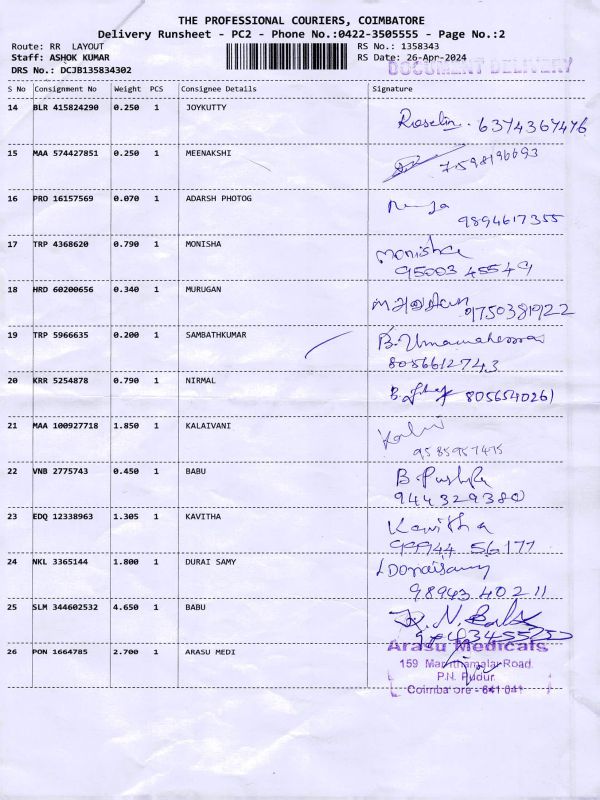 THE PROFESSIONAL COURIERS, COIMBATORE
Delivery Runsheet - PC2 - Phone No.:0422-3505555 - Page No.:2
Route: RR LAYOUT
RS No.: 1358343
Staff: ASHOK KUMAR
RS Date: 26-Apr-2024
DRS No.: DCJB135834302
DOCUMENT DELIVERY
S No Consignment No Weight PCS Consignee Details Signature
14 BLR 415824290 0.250 1 JOYKUTTY
Roselin. 6374367476
15 MAA 574427851 0.250 1 MEENAKSHI
7598196693
16 PRO 16157569 0.070 1 ADARSH PHOTOG
9894617355
17 TRP 4368620 0.790 1 MONISHA
Monisha
95003 45549
18 HRD 60200656 0.340 1 MURUGAN
19 TRP 5966635 0.200 1 SAMBATHKUMAR
B. Umamaheswari
8056612743
20 KRR 5254878 0.790 1 NIRMAL
8056540261
21 MAA 100927718 1.850 1 KALAIVANI
9585957475
22 VNB 2775743 0.450 1 BABU
B Pushpa
944329380
23 EDQ 12338963 1.305 1 KAVITHA
Kavitha
99944 56177
24 NKL 3365144 1.800 1 DURAI SAMY
98943 40211
25 SLM 344602532 4.650 1 BABU
26 PON 1664785 2.700 1 ARASU MEDI
Arasu Medicals
159 Maruthamalai Road
P.N. Pudur
Coimbatore - 641 041